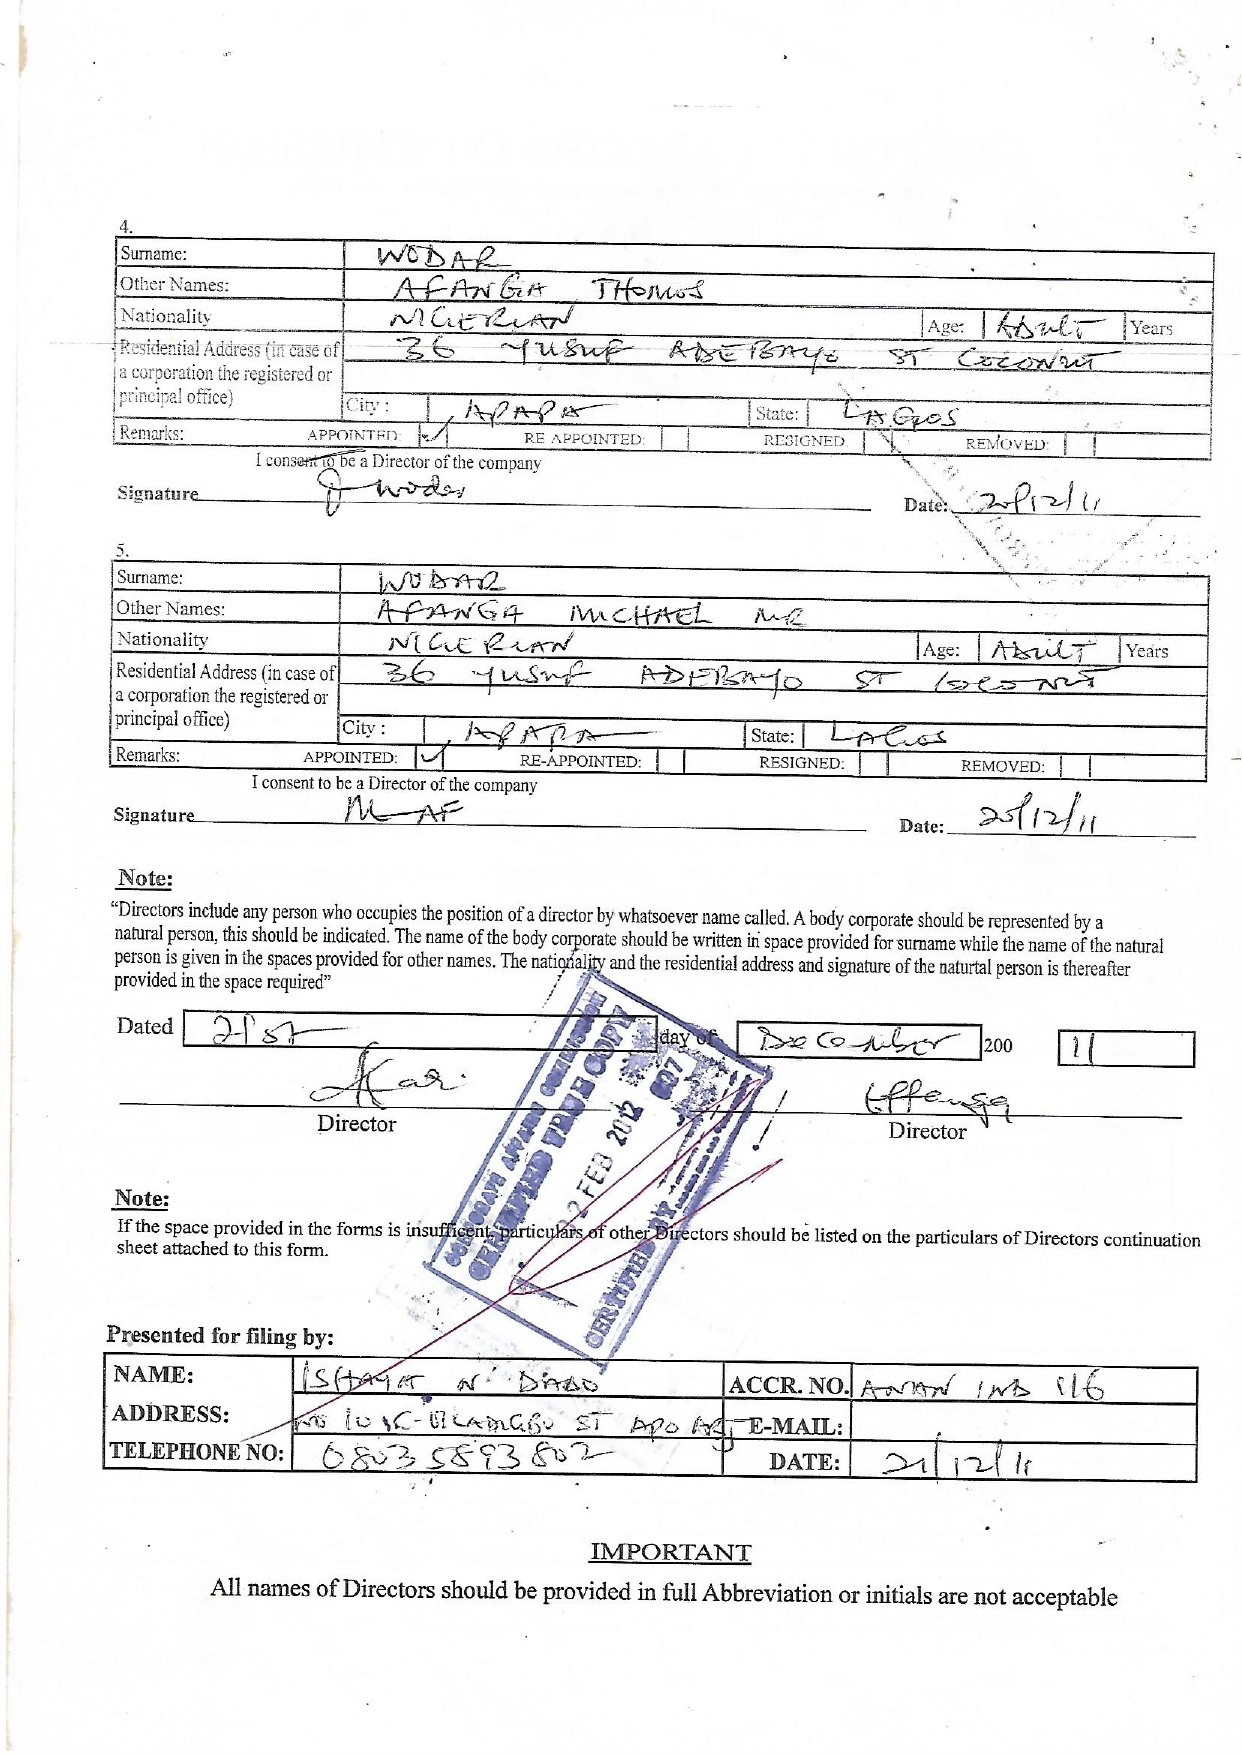 4.
Surname: WODAR
Other Names: AFANGA THOMOS
Nationality NIGERIAN Age: Adult Years
Residential Address (in case of 36 YUSUF ADEBAYO ST COCONUT
a corporation the registered or
principal office) City : APAPA State: LAGOS
Remarks: APPOINTED: ✓ RE APPOINTED: RESIGNED REMOVED:
I consent to be a Director of the company
Signature Date: 20/12/11
5.
Surname: WODAR
Other Names: AFANGA MICHAEL MR
Nationality NIGERIAN Age: Adult Years
Residential Address (in case of 36 YUSUF ADEBAYO ST COCONUT
a corporation the registered or
principal office) City : APAPA State: LAGOS
Remarks: APPOINTED: ✓ RE-APPOINTED: RESIGNED: REMOVED:
I consent to be a Director of the company
Signature Date: 20/12/11
Note:
“Directors include any person who occupies the position of a director by whatsoever name called. A body corporate should be represented by a
natural person, this should be indicated. The name of the body corporate should be written in space provided for surname while the name of the natural
person is given in the spaces provided for other names. The nationality and the residential address and signature of the naturtal person is thereafter
provided in the space required”
Dated 21st day of December 200 11
Director Director
CORPORATE AFFAIRS COMMISSION
CERTIFIED TRUE COPY
FEB 2012 607
CERTIFIED BY
Note:
If the space provided in the forms is insufficent, particulars of other Directors should be listed on the particulars of Directors continuation
sheet attached to this form.
Presented for filing by:
NAME: ISHAYA N. ACCR. NO. ANAN IND 116
ADDRESS: ST APO E-MAIL:
TELEPHONE NO: 08035893802 DATE: 21/12/11
IMPORTANT
All names of Directors should be provided in full Abbreviation or initials are not acceptable